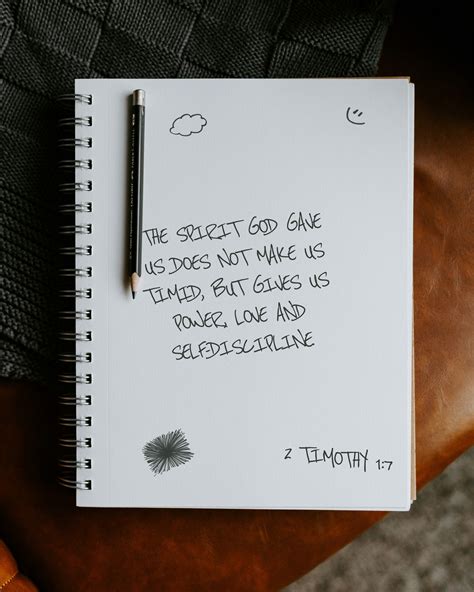 THE SPIRIT GOD GAVE
US DOES NOT MAKE US
TIMID, BUT GIVES US
POWER, LOVE AND
SELF-DISCIPLINE
2 TIMOTHY 1:7